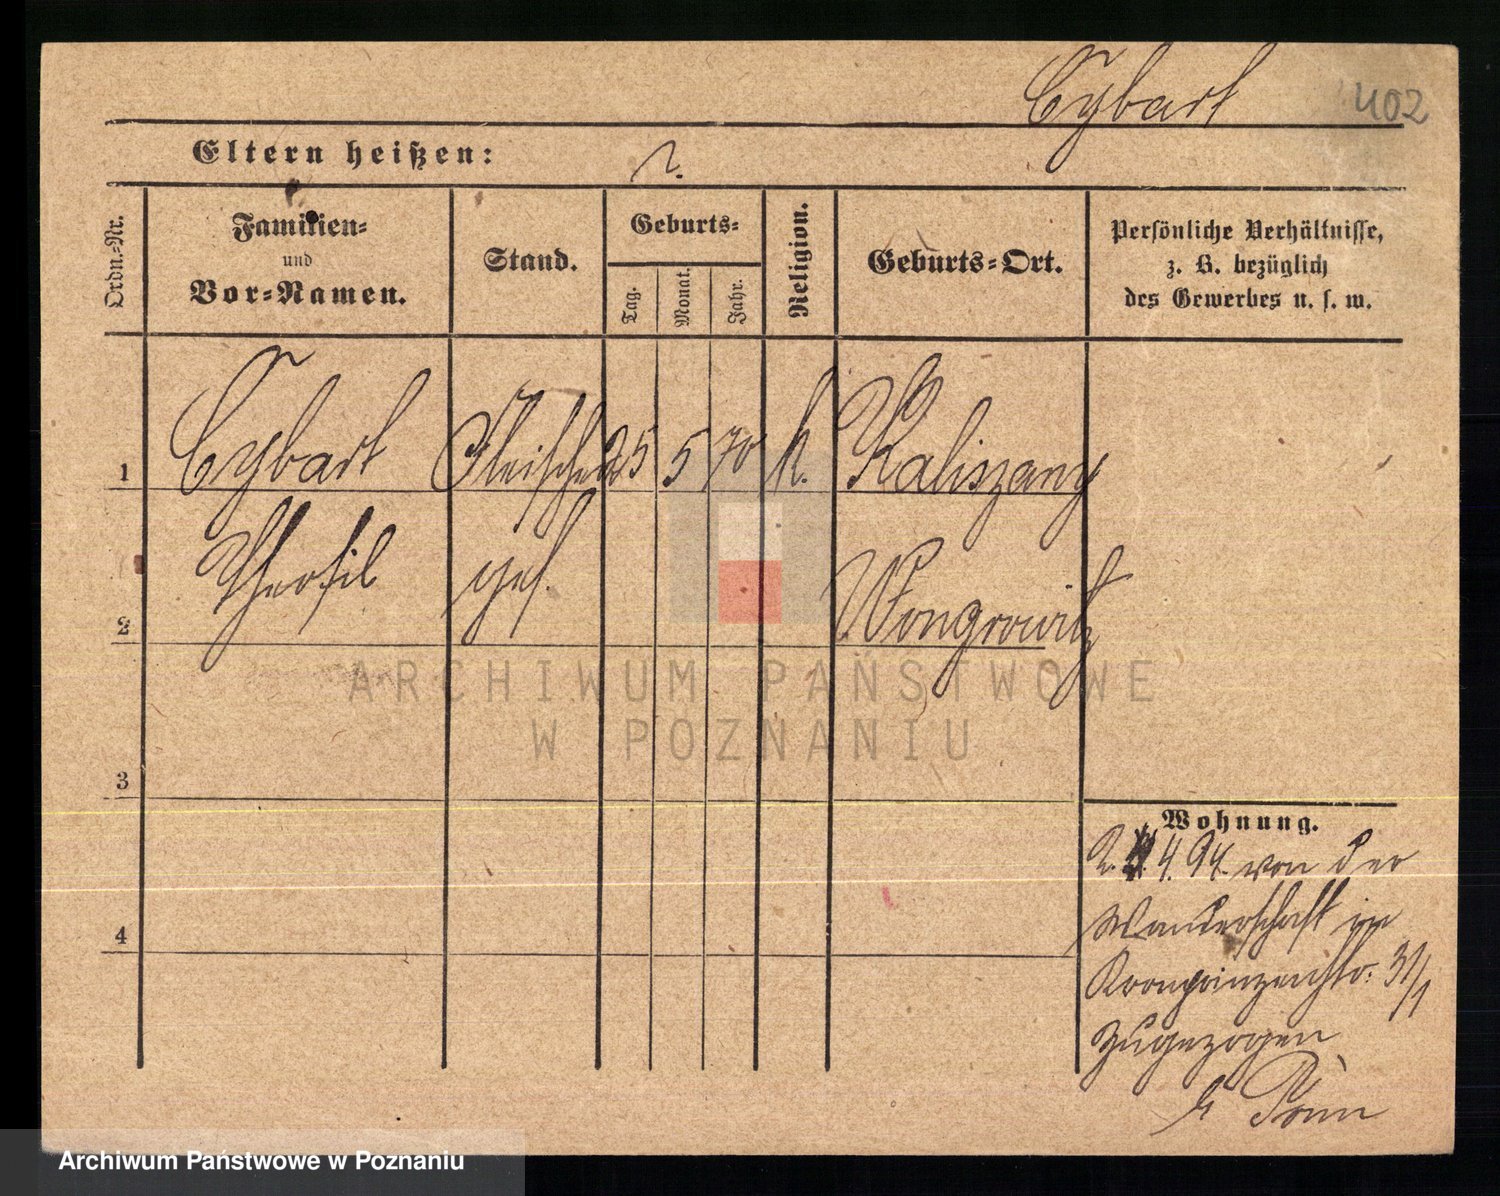 Cybart 402
Eltern heißen: ?.
Ordn.-Nr.
Familien-
und
Vor-Namen.
Stand.
Geburts-
Tag.
Monat.
Jahr.
Religion.
Geburts-Ort.
Persönliche Verhältnisse,
z. B. bezüglich
des Gewerbes u. s. w.
1 Cybart Fleischer 25 5 70 k. Kaliszany
2 Theofil ges. Wongrowitz
3
4
Wohnung.
4. 94. von der
Wanderschaft in
Kronprinzenstr. 31/1
zugezogen
ARCHIWUM PAŃSTWOWE
W POZNANIU
Archiwum Państwowe w Poznaniu